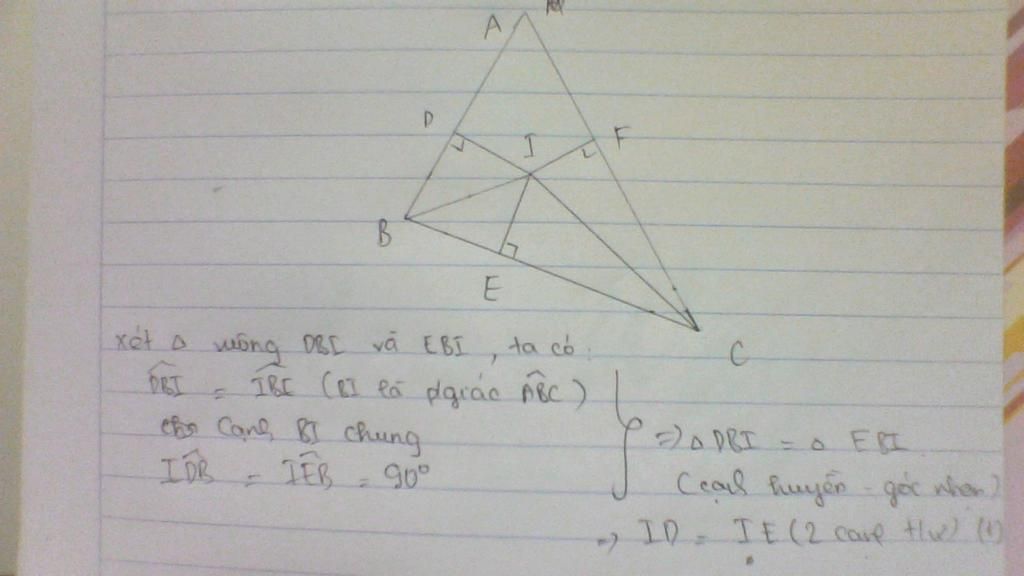 A
D
I
F
B
E
C
xét Δ vuông DBI và EBI, ta có:
DBI = IBE (BI là p/giác ABC)
cạnh BI chung
IDB = IEB = 90°
=> Δ DBI = Δ EBI
(cạnh huyền - góc nhọn)
=> ID = IE (2 cạnh t/ư) (1)